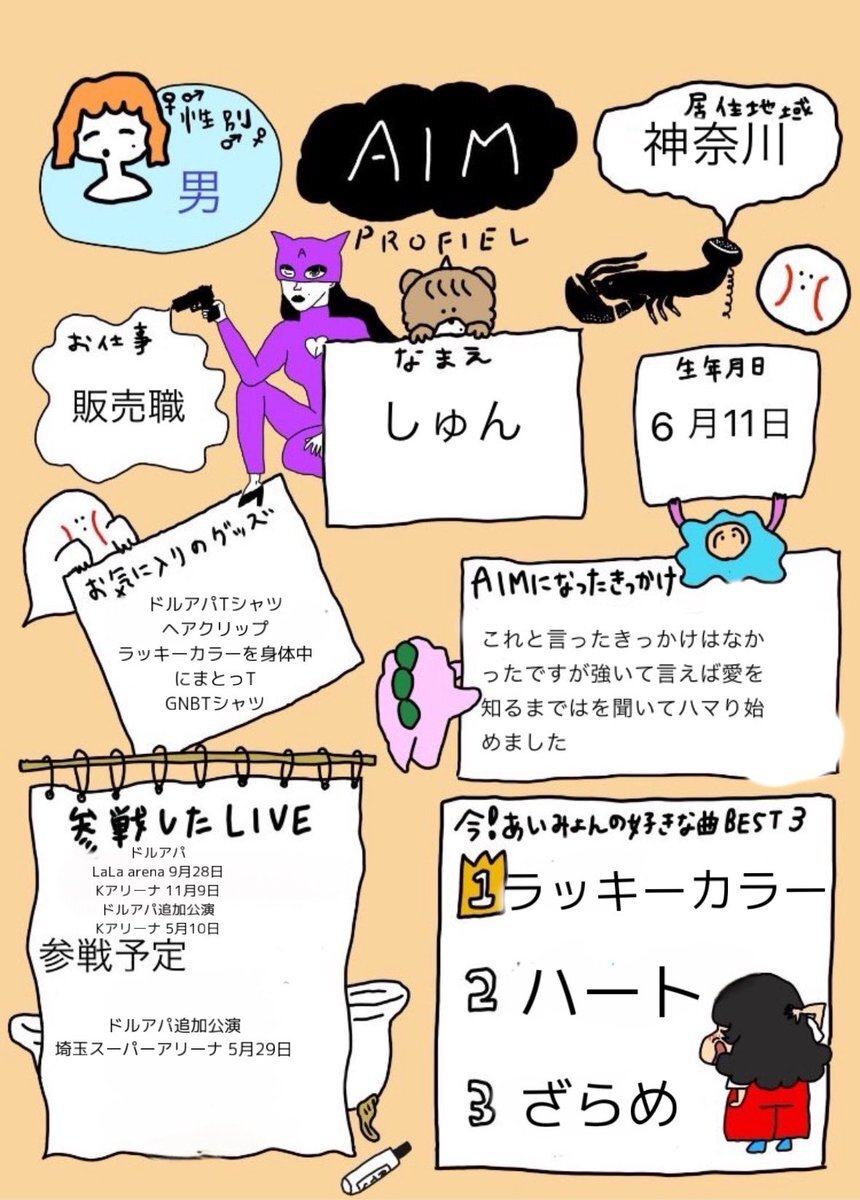 ♀♂性別♂♀
男
AIM
PROFIEL
居住地域
神奈川
お仕事
販売職
なまえ
しゅん
生年月日
6月11日
お気に入りのグッズ
ドルアパTシャツ
ヘアクリップ
ラッキーカラーを身体中
にまとっT
GNBTシャツ
AIMになったきっかけ
これと言ったきっかけはなか
ったですが強いて言えば愛を
知るまではを聞いてハマり始
めました
参戦したLIVE
ドルアパ
LaLa arena 9月28日
Kアリーナ 11月9日
ドルアパ追加公演
Kアリーナ 5月10日
参戦予定
ドルアパ追加公演
埼玉スーパーアリーナ 5月29日
今!あいみょんの好きな曲BEST3
1ラッキーカラー
2 ハート
3 ざらめ
A